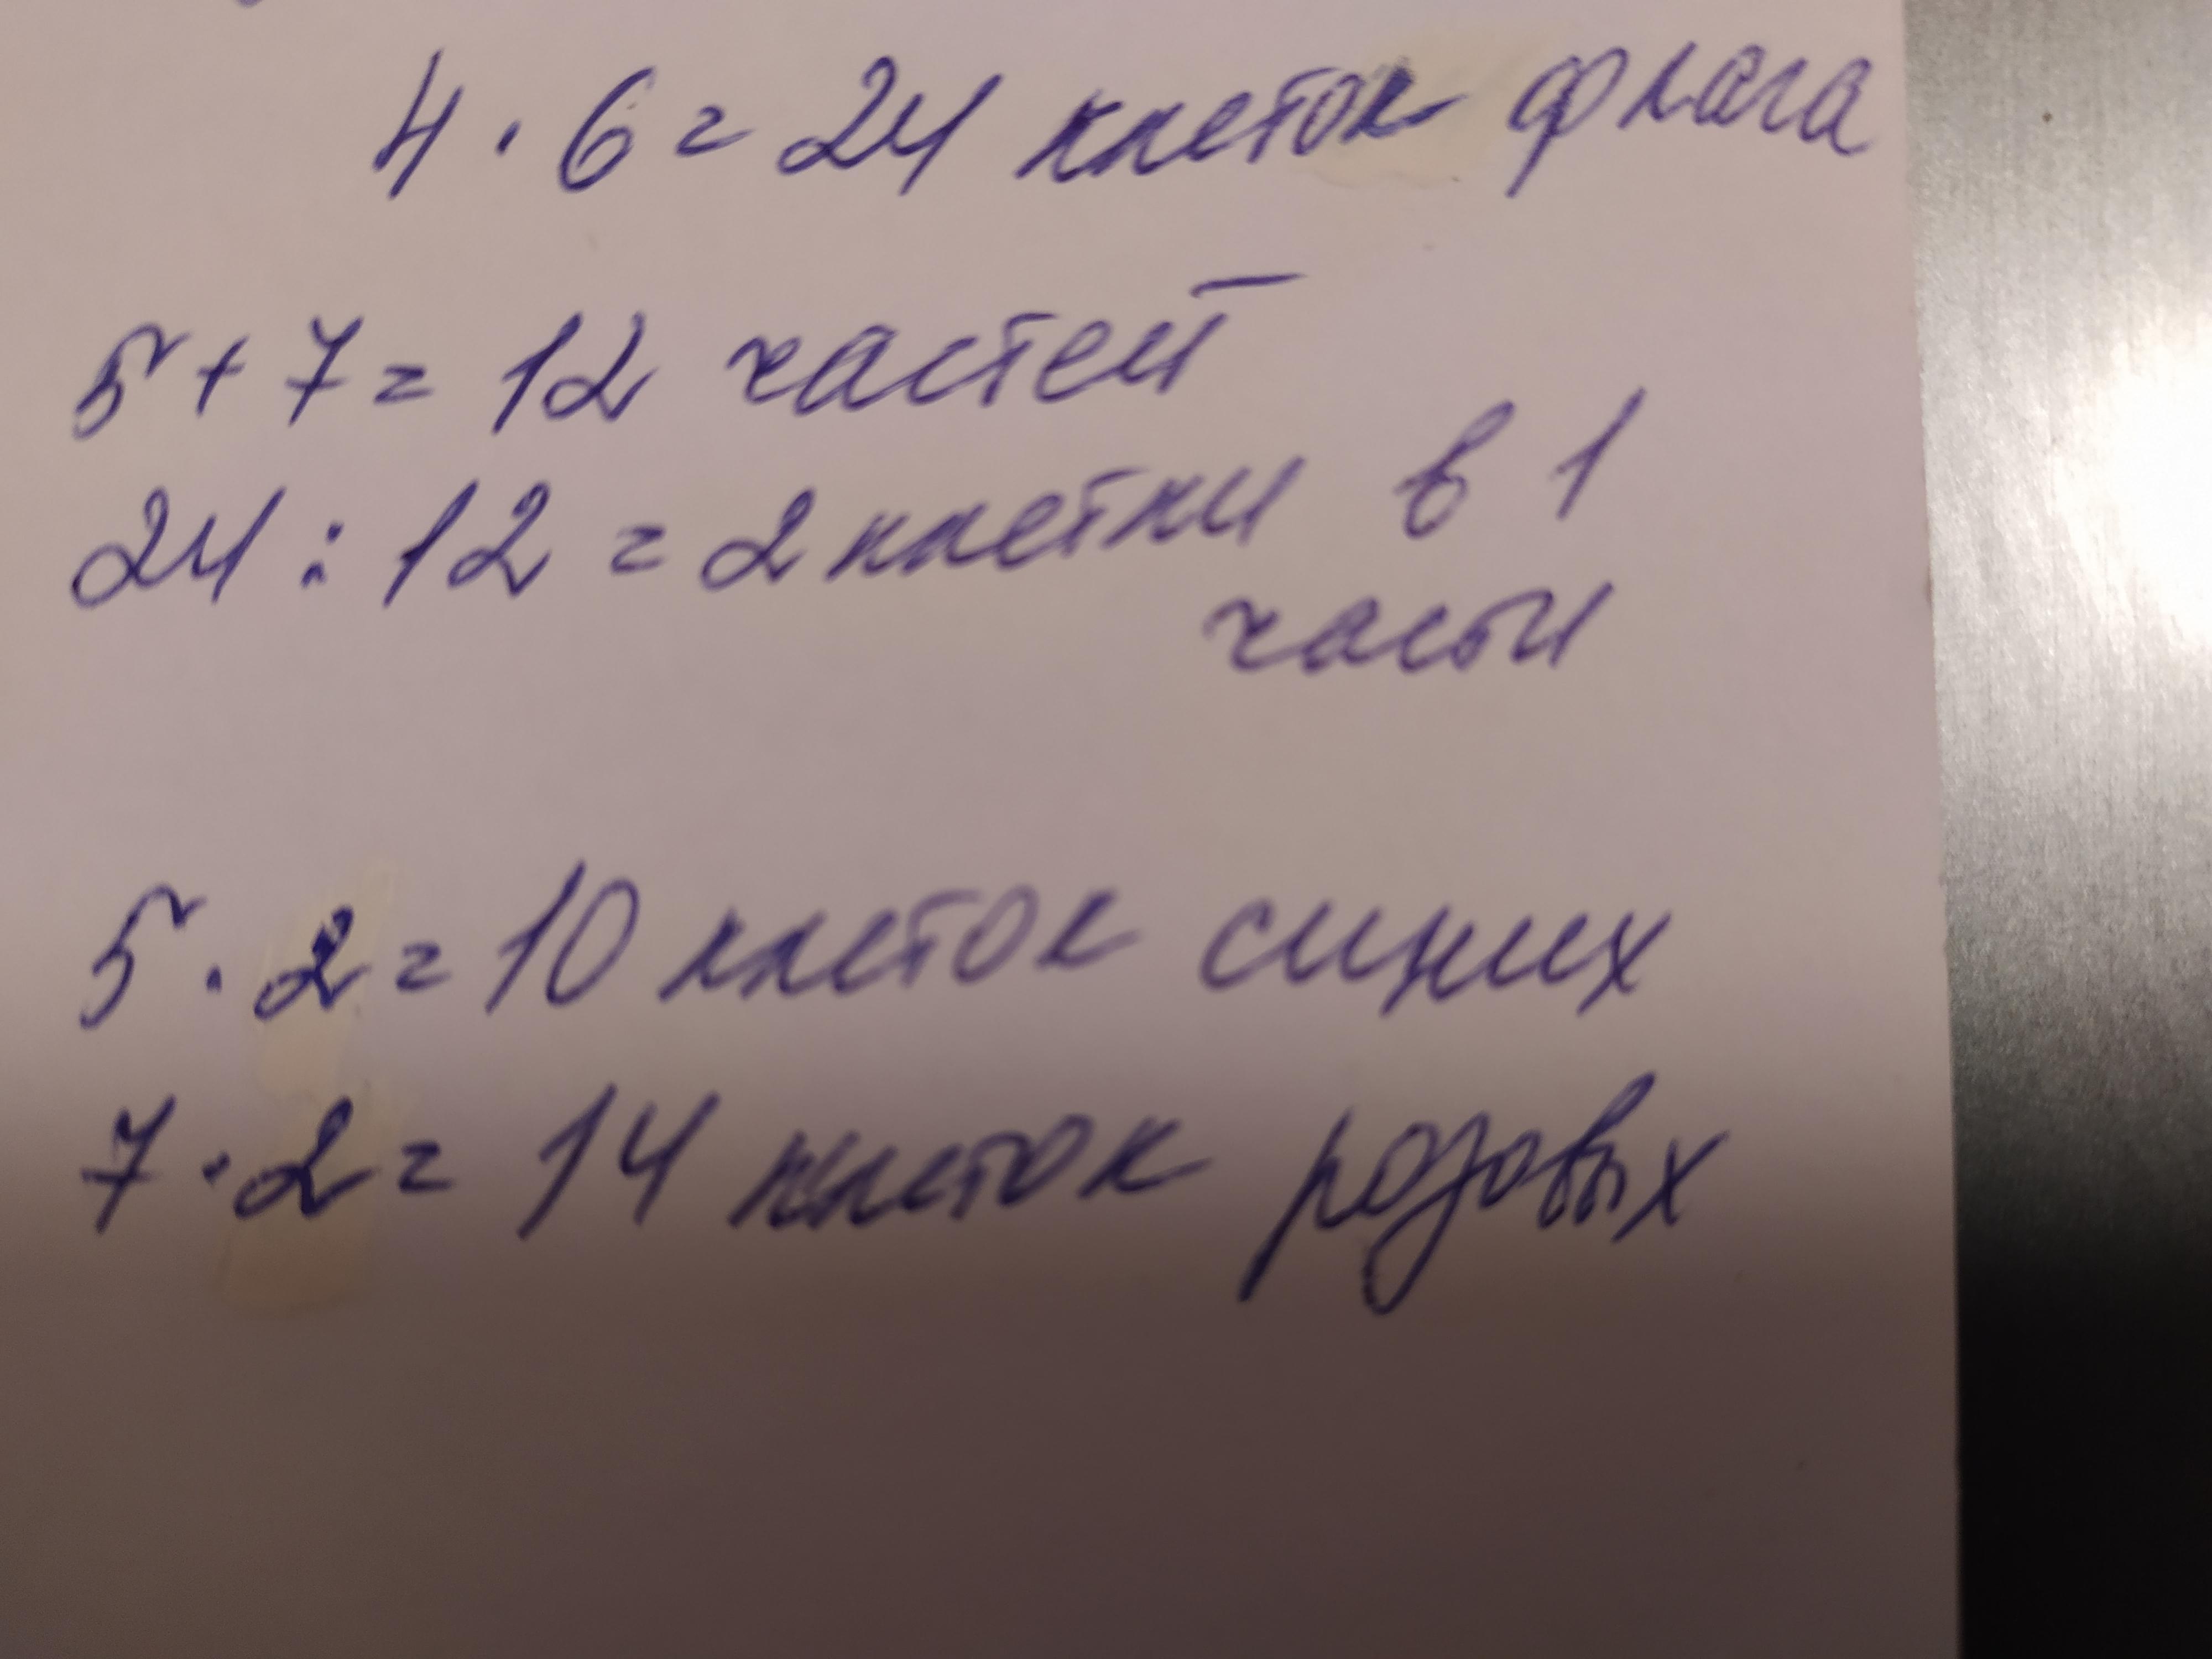 4 · 6 = 24 клеток флага
5 + 7 = 12 частей
24 : 12 = 2 клетки в 1
части
5 · 2 = 10 клеток синих
7 · 2 = 14 клеток розовых